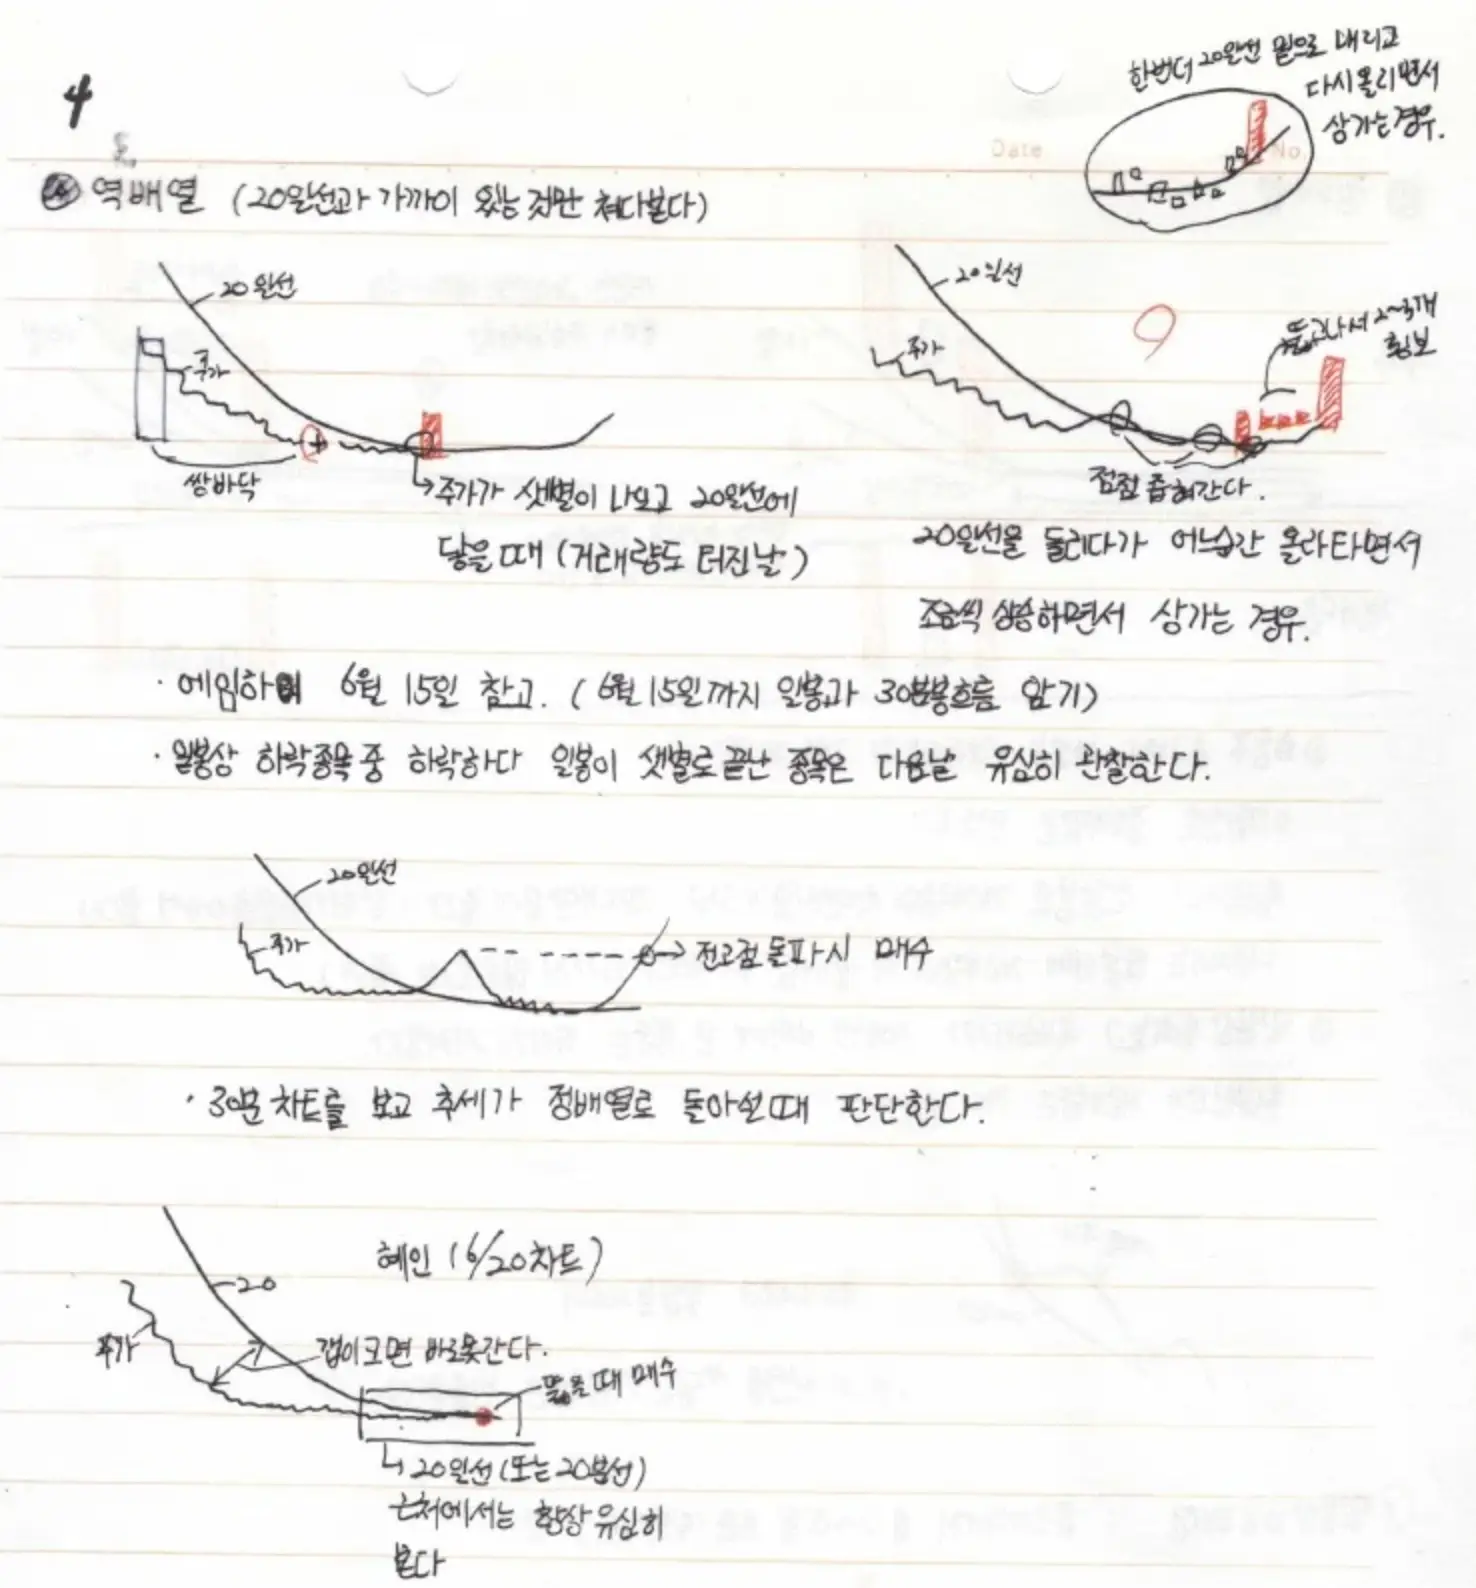 4
한번더 20일선 밑으로 내리고
다시 올리면서
상가는 경우.
Date
No
역배열 (20일선과 가까이 있는 것만 쳐다본다)
20일선
주가
쌍바닥
주가가 샛별이 나오고 20일선에
닿을때 (거래량도 터진날)
20일선
주가
뚫고나서 2~3개
횡보
점점 좁혀간다.
20일선을 돌리다가 어느순간 올라타면서
조금씩 상승하면서 상가는 경우.
· 에임하이 6월 15일 참고. (6월 15일까지 일봉과 30분봉흐름 암기)
· 일봉상 하락종목 중 하락하다 일봉이 샛별로 끝난 종목은 다음날 유심히 관찰한다.
20일선
주가
전고점 돌파시 매수
· 30분 차트를 보고 추세가 정배열로 돌아설때 판단한다.
혜인 (6/20차트)
20
주가
갭이크면 바로못간다.
뚫을때 매수
20일선 (또는 20봉선)
근처에서는 항상 유심히
본다